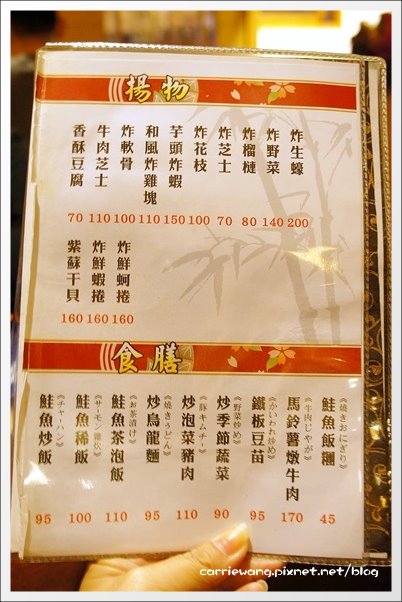 揚物
炸生蠔 200
炸野菜 140
炸榴槤 80
炸芝士 70
炸花枝 100
芋頭炸蝦 150
和風炸雞塊 110
炸軟骨 100
牛肉芝士 110
香酥豆腐 70
炸鮮蚵捲 160
炸鮮蝦捲 160
紫蘇干貝 160
食膳
《焼きおにぎり》
鮭魚飯糰 45
《牛肉じゃが》
馬鈴薯燉牛肉 170
《かいわれ炒め》
鐵板豆苗 95
《野菜炒め》
炒季節蔬菜 90
《豚キムチー》
炒泡菜豬肉 110
《焼きうどん》
炒烏龍麵 95
《お茶漬け》
鮭魚茶泡飯 110
《サーモン雑炊》
鮭魚稀飯 100
《チャーハン》
鮭魚炒飯 95
carriewang.pixnet.net/blog